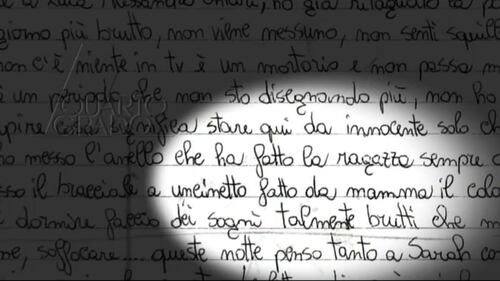 e a Luca Alessandra Chiara, ho già ritagliato la
giorno più brutto, non viene nessuno, non senti squill
non c'è niente in tv è un mortorio e non passa m
è un periodo che non sto disegnando più, non ho
pire cosa significa stare qui da innocente solo ch
o messo l'anello che ha fatto la ragazza sempre
sso il bracciale a uncinetto fatto da mamma il col
dormire faccio dei sogni talmente brutti che m
ne, soffocare.... queste notte penso tanto a Sarah co